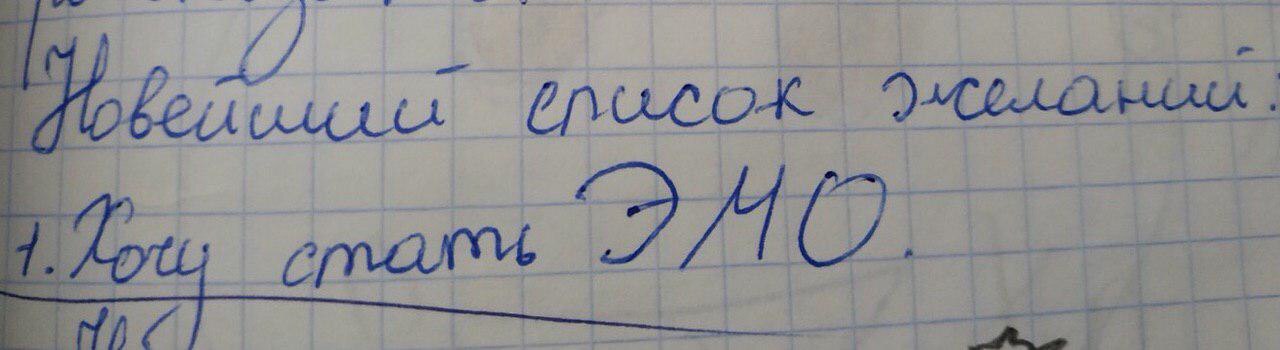 Новейший список желаний:
1. Хочу стать ЭМО.